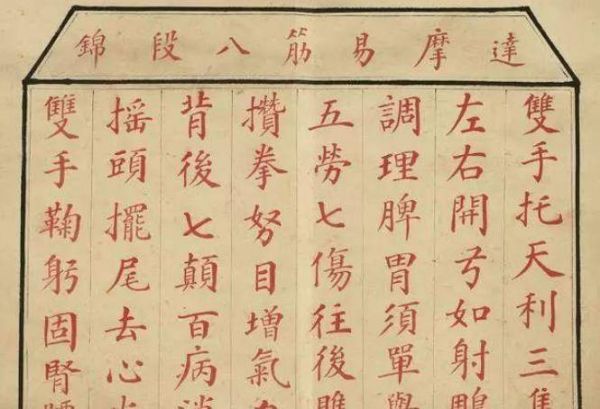 達摩易筋八段錦
雙手托天利三
左右開弓如射
調理脾胃須單舉
五勞七傷往後瞧
攢拳努目增氣
背後七顛百病消
搖頭擺尾去心
雙手鞠躬固腎腰